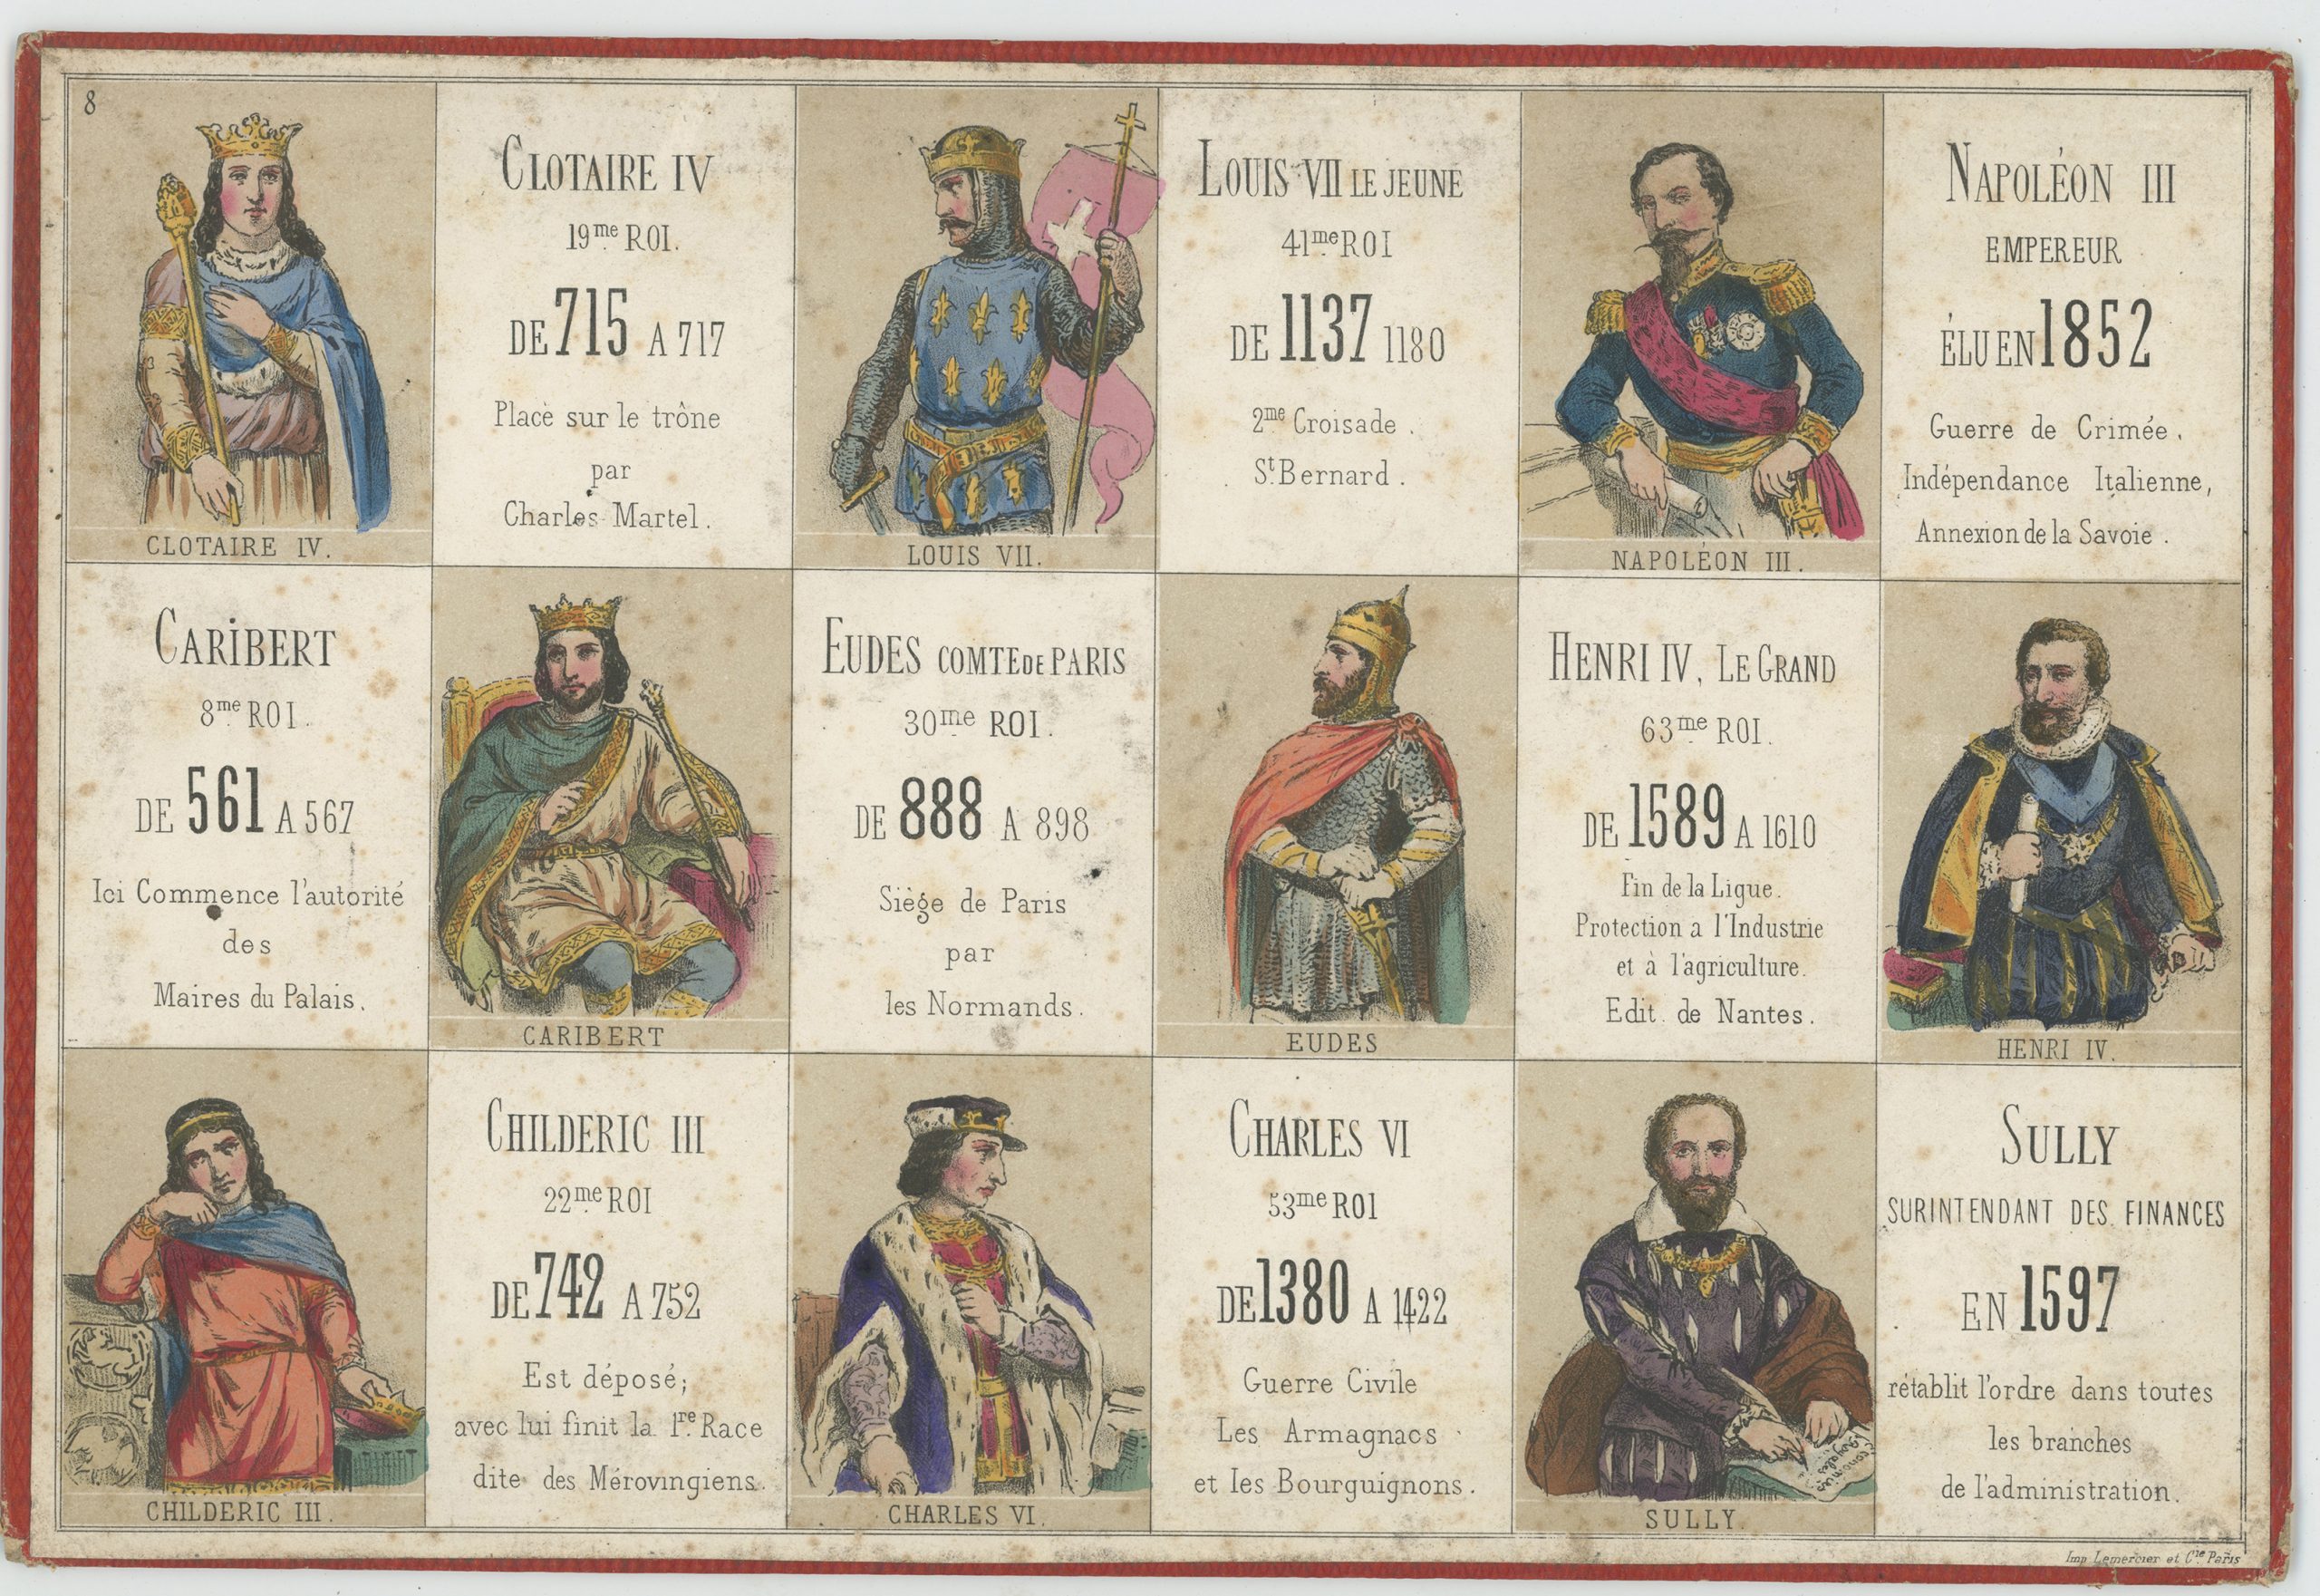 8
CLOTAIRE IV.
CLOTAIRE IV
19me ROI.
DE 715 A 717
Placè sur le trône
par
Charles Martel.
LOUIS VII.
LOUIS VII LE JEUNE
41me ROI
DE 1137 1180
2me Croisade.
St Bernard.
NAPOLÉON III.
NAPOLÉON III
EMPEREUR
ÉLU EN 1852
Guerre de Crimée.
Indépendance Italienne,
Annexion de la Savoie.
CARIBERT
8me ROI.
DE 561 A 567
Ici Commence l'autorité
des
Maires du Palais.
CARIBERT
EUDES COMTE DE PARIS
30me ROI.
DE 888 A 898
Siège de Paris
par
les Normands.
EUDES
HENRI IV, LE GRAND
63me ROI.
DE 1589 A 1610
Fin de la Ligue.
Protection a l'Industrie
et à l'agriculture.
Edit. de Nantes.
HENRI IV.
CHILDERIC III.
CHILDERIC III
22me ROI
DE 742 A 752
Est déposé;
avec lui finit la 1re Race
dite des Mérovingiens.
CHARLES VI.
CHARLES VI
53me ROI
DE 1380 A 1422
Guerre Civile
Les Armagnacs
et les Bourguignons.
SULLY.
SULLY
SURINTENDANT DES FINANCES
EN 1597
rétablit l'ordre dans toutes
les branches
de l'administration.
Imp Lemercier et Cie Paris